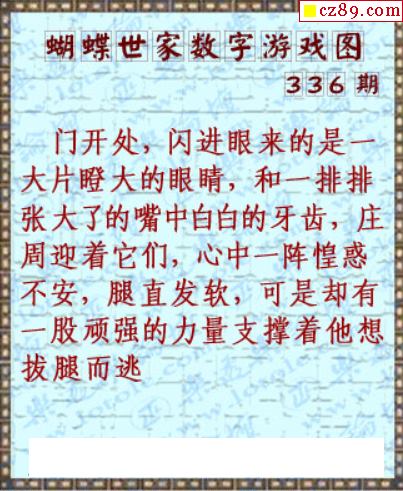 cz89.com
蝴蝶世家数字游戏图
336期
门开处，闪进眼来的是一
大片瞪大的眼睛，和一排排
张大了的嘴中白白的牙齿，庄
周迎着它们，心中一阵惶惑
不安，腿直发软，可是却有
一股顽强的力量支撑着他想
拔腿而逃